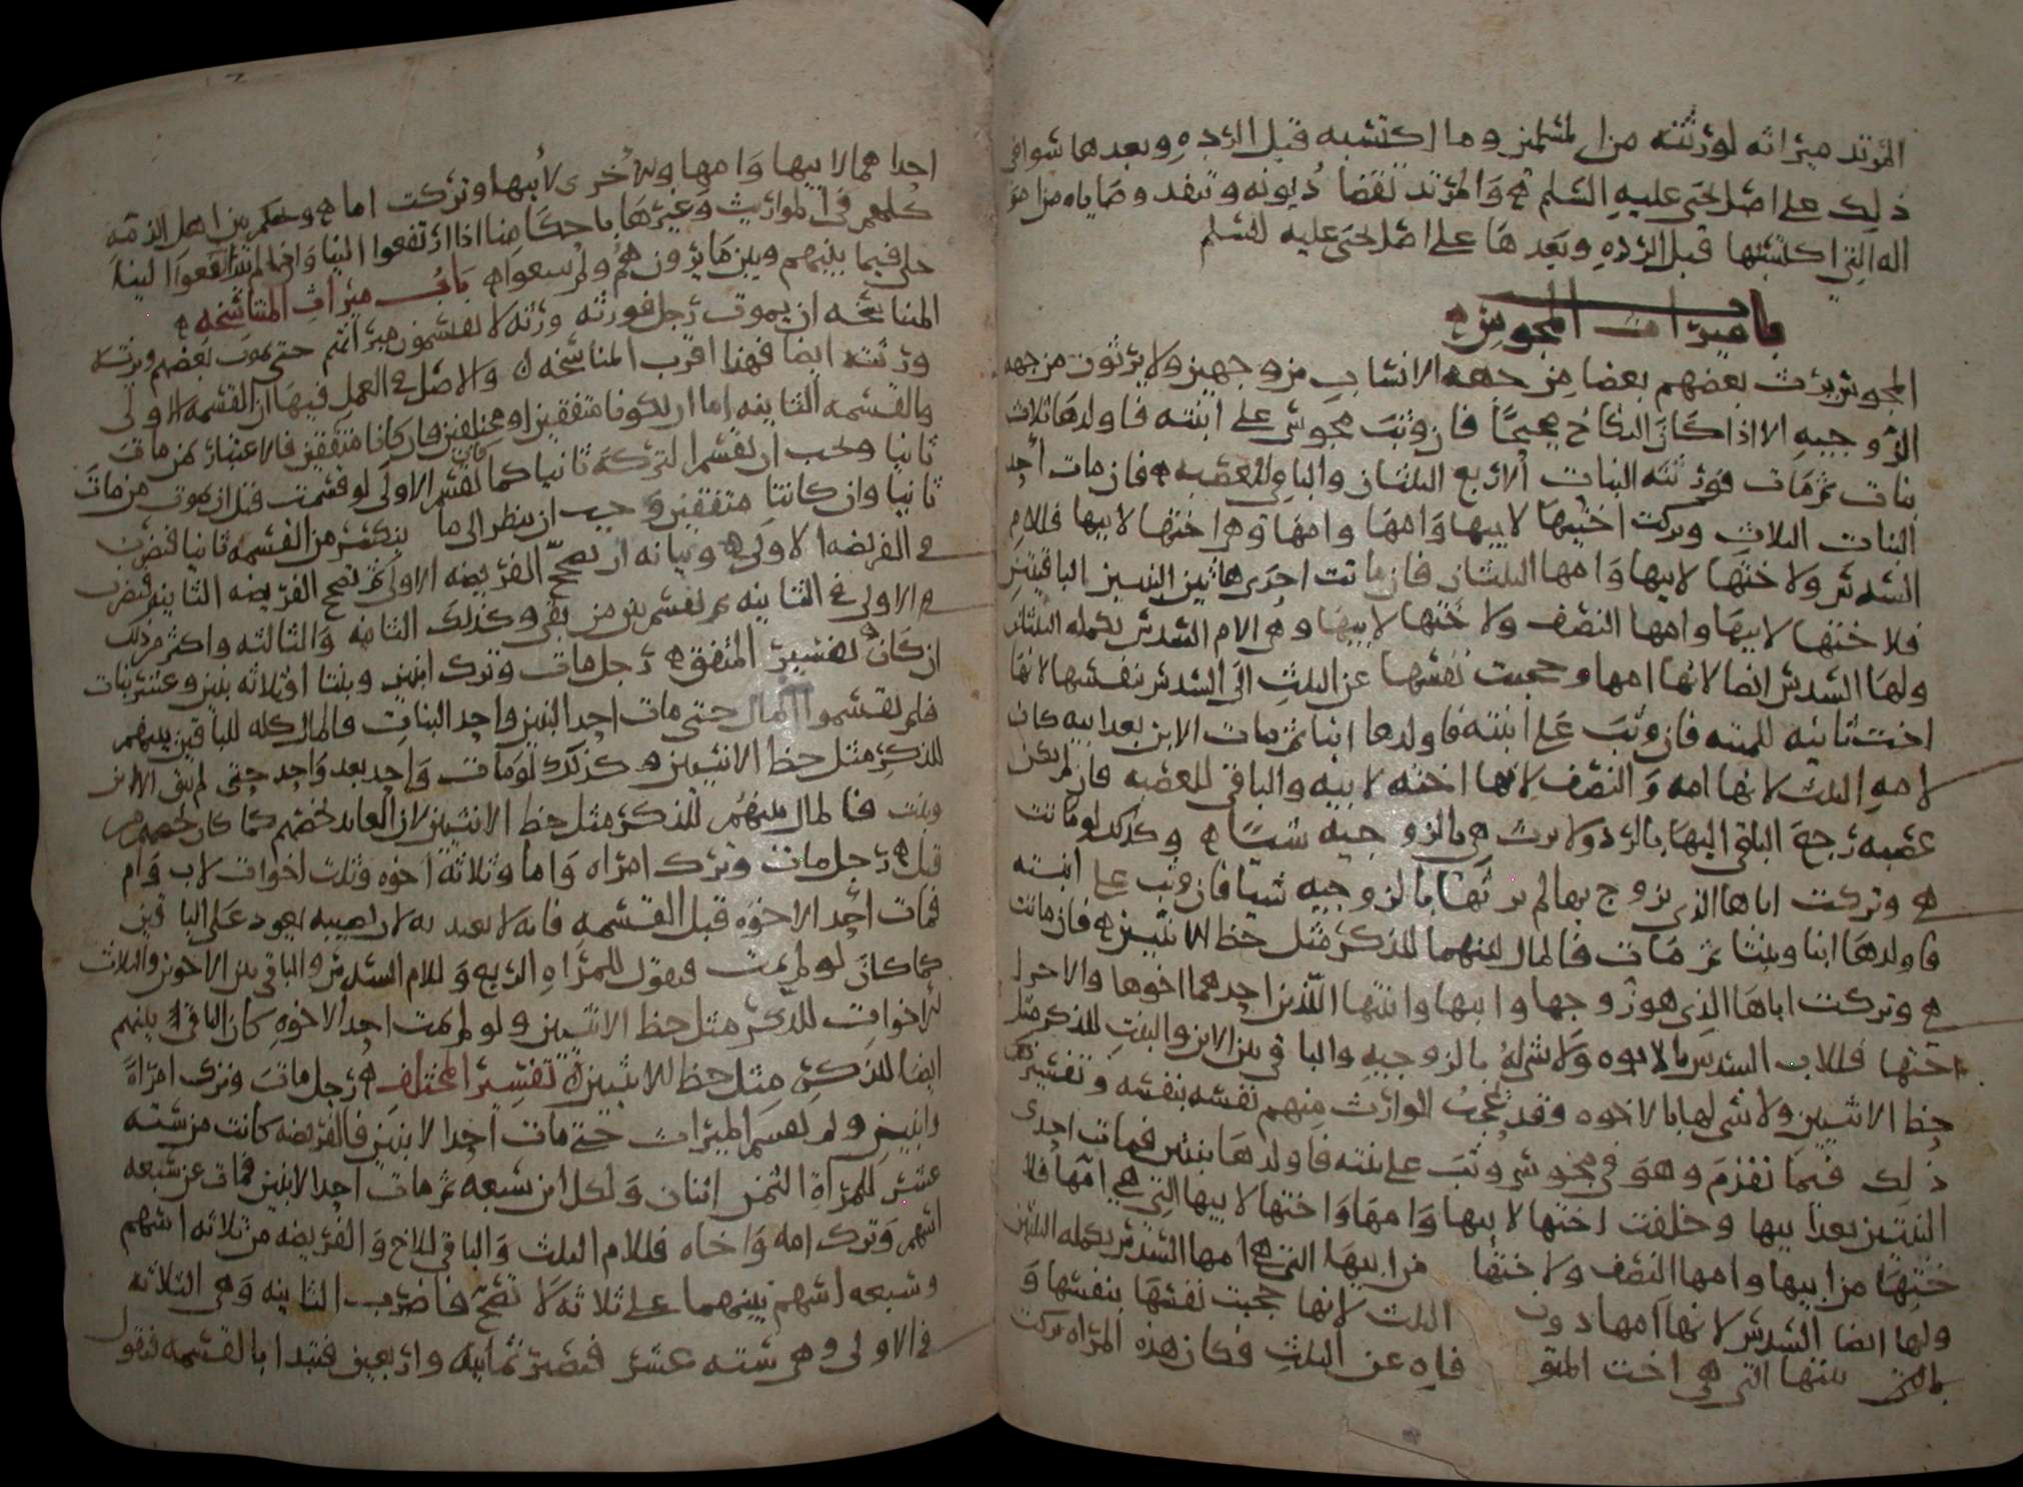 المرتد ميراثه لورثته من المسلمين وما اكتسبه قبل الردة وبعدها سوا في
ذلك على اصل يحيى عليه السلم والمرتد تقضا ديونه وتنفذ وصاياه من امو
اله التي اكتسبها قبل الرده وبعدها على اصل يحيى عليه السلم
باب ميراث المجوس
المجوس يرث بعضهم بعضا من جهه الانساب من وجهين ولا يرثون من جهه
الزوجيه الا اذا كان النكاح صحيحا فان وثب مجوسي على ابنته فاولدها ثلاث
بنات ثم مات فورثته البنات الاربع الثلثان والباقي للعصبه فان مات احد
البنات الثلاث وتركت اختيها لابيها وامها وامها وهي اختها لابيها فللام
السدس ولاختيها لابيها وامها الثلثان فان ماتت احدى هاتين البنتين الباقيتين
فلاختها لابيها وامها النصف ولاختها لابيها وهي الام السدس تكمله الثلثان
ولها السدس ايضا لانها امها وحجبت نفسها عن الثلث الى السدس بنفسها لانها
اخت ثانيه للميته فان وثب على ابنته فاولدها ابنا ثم مات الابن بعد ابيه كان
لامه الثلث لانها امه والنصف لانها اخته لابيه والباقي للعصبه فان لم يكن
عصبه رجع الباقي اليها بالرد ولا يرث بالزوجيه شيئا وكذلك لو ماتت
هي وتركت اباها الذي تزوج بها لم يرثها بالزوجيه شيا فان وثب على ابنته
فاولدها ابنا وبنتا ثم مات فالمال بينهما للذكر مثل حظ الانثيين فان ماتت
هي وتركت اباها الذي هو زوجها وابنها وابنتها اللذين احدهما اخوها والاخرى
اختها فللاب السدس بالابوه ولا شي له بالزوجيه والباقي بين الابن والبنت للذكر مثل
حظ الانثيين ولا شي لهما بالاخوه وقد يحجب الوارث منهم نفسه بنفسه وتفسير
ذلك فيما تقدم وهو في مجوسي وثب على بنته فاولدها بنتين فماتت احدى
البنتين بعد ابيها وخلفت اختها لابيها وامها وامها واختها لابيها التي هي امها فلا
ختها من ابيها وامها النصف ولاختها من ابيها التي هي امها السدس تكمله الثلثين
ولها ايضا السدس لانها امها دون الثلث لانها حجبت نفسها بنفسها و
بنتها التي هي اخت المتوفاه عن الثلث فكان هذه المراه تركت
احداهما لابيها وامها والاخرى لابيها وتركت اما وحكم من اهل الذمه
كلهم في المواريث وغيرها باحكامنا اذا ارتفعوا الينا واذا لم يترافعوا الينا
خلي فيما بينهم وبين ما يرونه هم ولم يمنعوا باب ميراث المناسخه
المناسخه ان يموت رجل فورثته ورثه لا يقسمون ميراثهم حتى يموت بعضهم ويرثه
ورثته ايضا فهذا اقرب المناسخه والاصل في العمل فيها ان القسمه الاولى
والقسمه الثانيه اما ان يكونا متفقين او مختلفين فان كانا متفقين فالاعتبار بمن مات
ثانيا ويجب ان تقسم التركه ثانيا كما كان تقسم الاولى لو قسمت قبل ان يموت من مات
ثانيا وان كانتا متفقتين وجب ان ينظر الى ما ينكسر من القسمه ثانيا فتضرب
في الفريضه الاولى وبيانه ان تصحح الفريضه الاولى ثم تصحح الفريضه الثانيه فتضرب
في الاولى في الثانيه ثم تقسم بين من بقي وكذلك الثانيه والثالثه واكثر من ذلك
ان كان تفسير المتفق رجل مات وترك ابنين وبنتا او ثلاثه بنين وعشر بنات
فلم يقسموا المال حتى مات احد البنين واحد البنات فالمال كله للباقين بينهم
للذكر مثل حظ الانثيين وكذلك لو مات واحد بعد واحد حتى لم يبق الا ابن
وبنت فالمال بينهم للذكر مثل حظ الانثيين لان العايد يخصهم كما كان يخصهم من
قبل رجل مات وترك امراه واما وثلاثة اخوه وثلث اخوات لاب وام
فمات احد الاخوه قبل القسمه فانه لا يعتد به لان نصيبه يعود على الباقين
كما كان لو لم يمت فيقول للمراه الربع وللام السدس والباقي بين الاخوين والثلاث
الاخوات للذكر مثل حظ الانثيين ولو لم يمت احد الاخوه كان الباقي بينهم
ايضا للذكر مثل حظ الانثيين تفسير المختلف رجل مات وترك امراة
وابنين ولم تقسم الميراث حتى مات احد الابنين فالفريضه كانت من سته
عشر للمراة الثمن اثنان ولكل ابن سبعه ثم مات احد الابنين فمات عن سبعه
اسهم وترك امه واخاه فللام الثلث والباقي للاخ والفريضه من ثلاثه اسهم
وسبعه اسهم بينهما على ثلاثه لا تصح فاضرب الثانيه وهي الثلاثه
في الاولى وهي سته عشر فتصير ثمانيه واربعين فتبدا بالقسمه فتقول